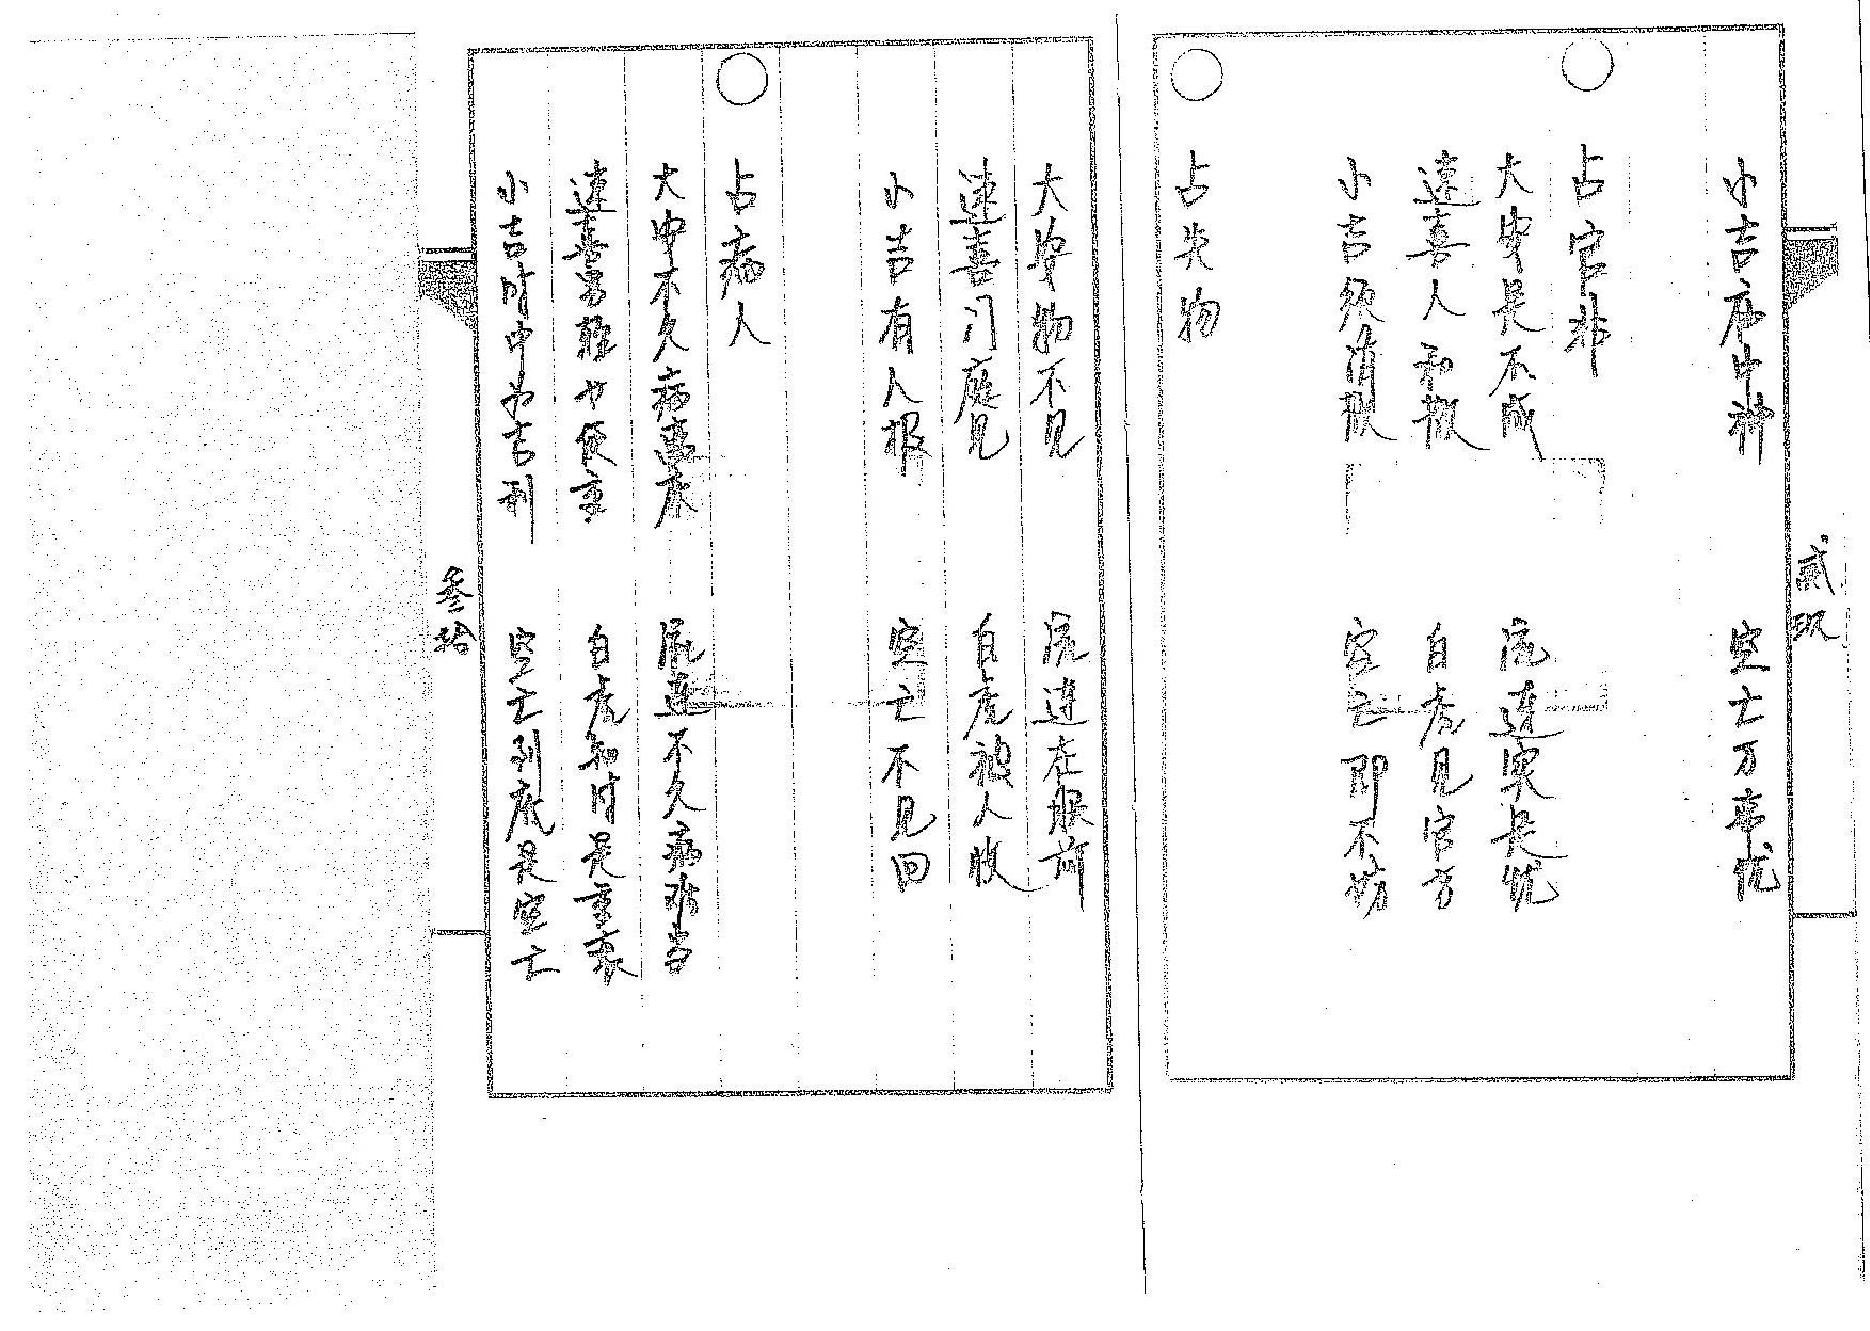 小吉庙中神 空亡万事忧
占官非
大安是不成 流连实长忧
速喜人和散 白虎见官方
小吉须消散 空亡即不妨
占失物
贰玖
大安物不见 流连在眼前
速喜门庭见 白虎被人收
小吉有人报 空亡不见回
占病人
大安不久病离床 流连不久病难当
速喜 白虎 时是重丧
小吉时中为吉利 空亡到底是空亡
叁拾